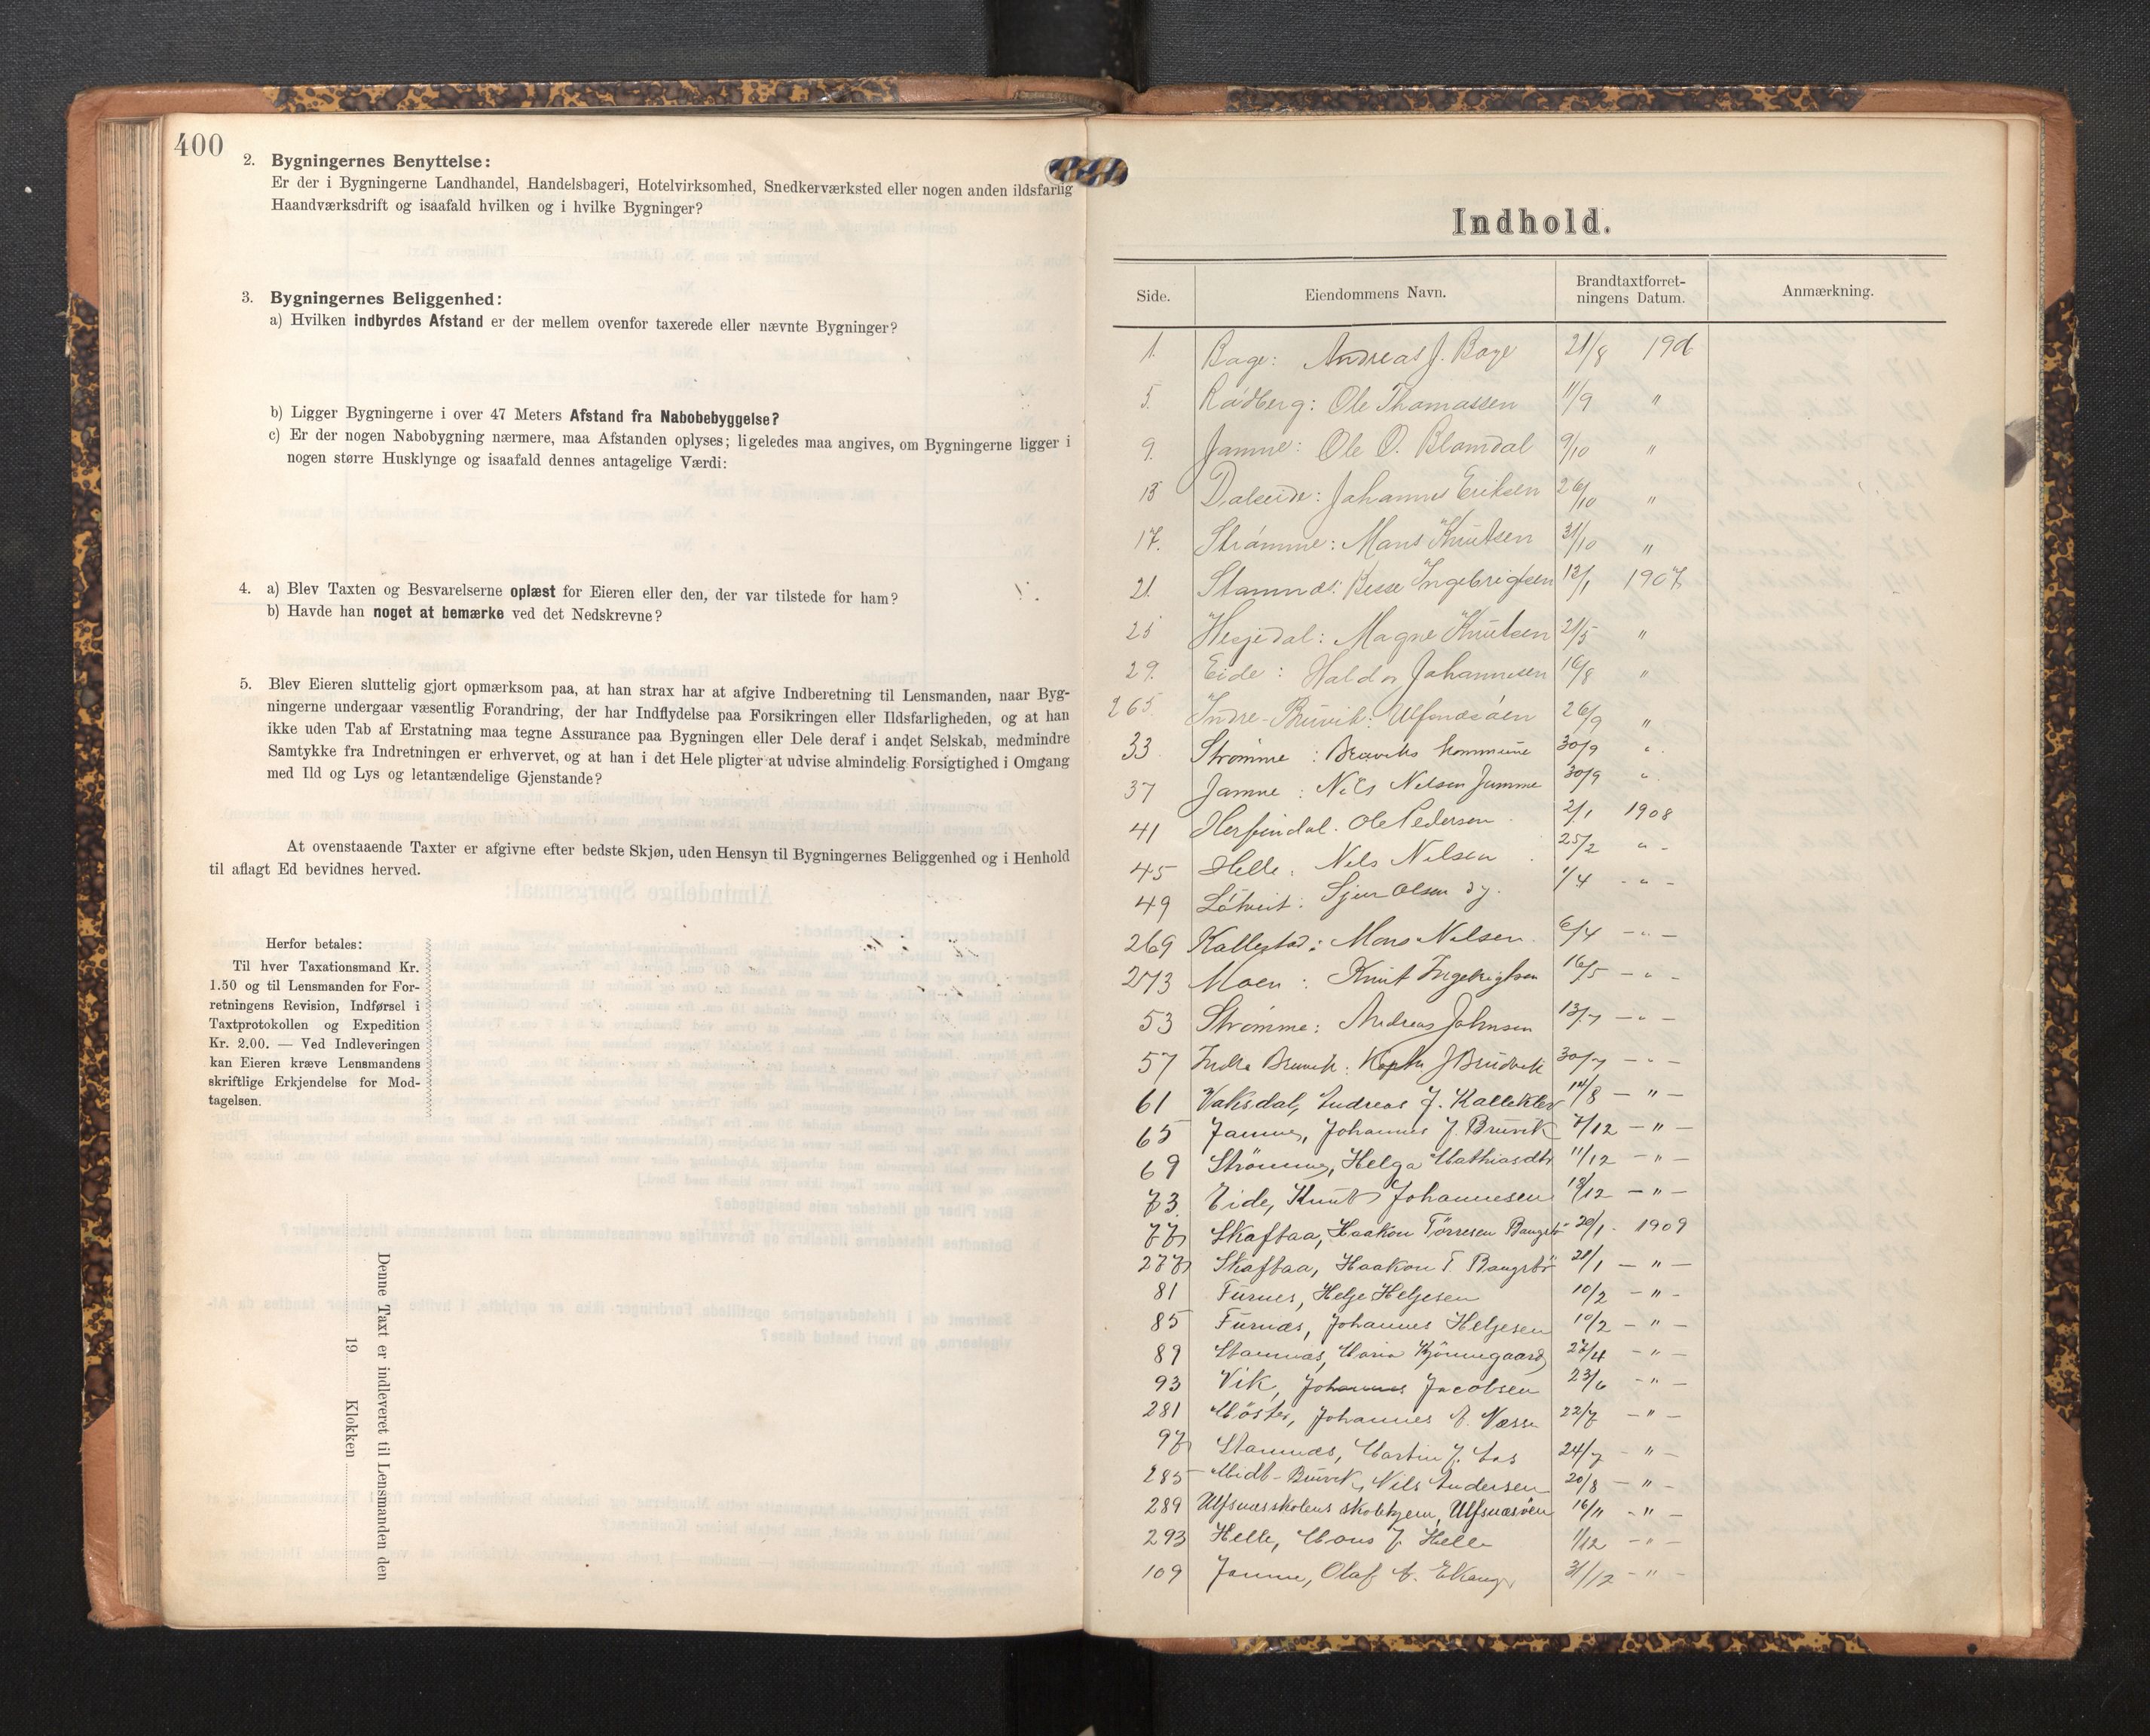 400
2. Bygningernes Benyttelse:
Er der i Bygningerne Landhandel, Handelsbageri, Hotelvirksomhed, Snedkerværksted eller nogen anden ildsfarlig
Haandværksdrift og isaafald hvilken og i hvilke Bygninger?
3. Bygningernes Beliggenhed:
a) Hvilken indbyrdes Afstand er der mellem ovenfor taxerede eller nævnte Bygninger?
b) Ligger Bygningerne i over 47 Meters Afstand fra Nabobebyggelse?
c) Er der nogen Nabobygning nærmere, maa Afstanden oplyses; ligeledes maa angives, om Bygningerne ligger i
nogen større Husklynge og isaafald dennes antagelige Værdi:
4. a) Blev Taxten og Besvarelserne oplæst for Eieren eller den, der var tilstede for ham?
b) Havde han noget at bemærke ved det Nedskrevne?
5. Blev Eieren sluttelig gjort opmærksom paa, at han strax har at afgive Indberetning til Lensmanden, naar Byg-
ningerne undergaar væsentlig Forandring, der har Indflydelse paa Forsikringen eller Ildsfarligheden, og at han
ikke uden Tab af Erstatning maa tegne Assurance paa Bygningen eller Dele deraf i andet Selskab, medmindre
Samtykke fra Indretningen er erhvervet, og at han i det Hele pligter at udvise almindelig Forsigtighed i Omgang
med Ild og Lys og letantændelige Gjenstande?
At ovenstaaende Taxter er afgivne efter bedste Skjøn, uden Hensyn til Bygningernes Beliggenhed og i Henhold
til aflagt Ed bevidnes herved.
Herfor betales:
Til hver Taxationsmand Kr.
1.50 og til Lensmanden for For-
retningens Revision, Indførsel i
Taxtprotokollen og Expedition
Kr. 2.00. — Ved Indleveringen
kan Eieren kræve Lensmandens
skriftlige Erkjendelse for Mod-
tagelsen.
Denne Taxt er indleveret til Lensmanden den
19 Klokken
Indhold.
Side. Eiendommens Navn. Brandtaxtforret-
ningens Datum. Anmærkning.
1. Andreas J. 21/8
5. Rødberg: Ole Thomassen 11/9 "
9. Jamne: Ole O. Blomdal 9/10 "
13 Daleide: Johannes Eriksen 26/10 "
17. Strømme: Mons Knutsen 31/10 "
21. Stamnæs: Ingebrigtsen 12/1 1907
25 Hesjedal: Magne Knutsen 21/5 "
29. Eide: Haldor Johannesen 16/8 "
265 Indre-Bruvik: Ulfsnæsøen 26/9 "
33 Strømme: Bruviks kommune 30/9 "
37 Jamne: Nils Nilsen Jamne 30/9 "
41 Herfindal. Ole Pedersen 2/1 1908
45 Helle: Nils Nilsen 25/2 " -
49 Sjur Olsen 1/4 - " -
269 Kallestad: Mons Nilsen 6/4 - " -
273 Moen: Knut Ingebrigtsen 16/5 - " -
53 Strømme: Andreas Johnsen 13/7 - " -
57 Indre Bruvik: J Brudvik 30/7 - " -
61 Vaksdal, Andreas J. 14/8 - " -
65 Jamne, Johannes J. Bruvik 7/12 - " -
69 Strömme, Helga Mathiasdtr 11/12 - " -
73. Eide, Knut Johannesen 12/12 - " -
77 Skaftaa, Haakon Tørresen Baugstö 20/1. 1909
277 Skaftaa, Haakon T Baugstö 21/1 - " -
81 Furnes, Helje Heljesen 10/2 - " -
85 Furnæs, Johannes Heljesen 10/2 - " -
89 Stamnæs, Maria 27/4 - " -
93 Vik, Johannes Jacobsen 23/6 - " -
281 Möster, Johannes A. 22/7 - " -
97 Stamnæs, Martin J. 24/7 - " -
285 Midt-Bruvik, Nils Andersen 20/8 - " -
289 Ulfsnæsskolens skolehjem, Ulfsnæsöen 16/11 - " -
293 Helle, Mons J. Helle 1/12 - " -
109 Jamne, Olaf A. Ekanger 31/12 - " -